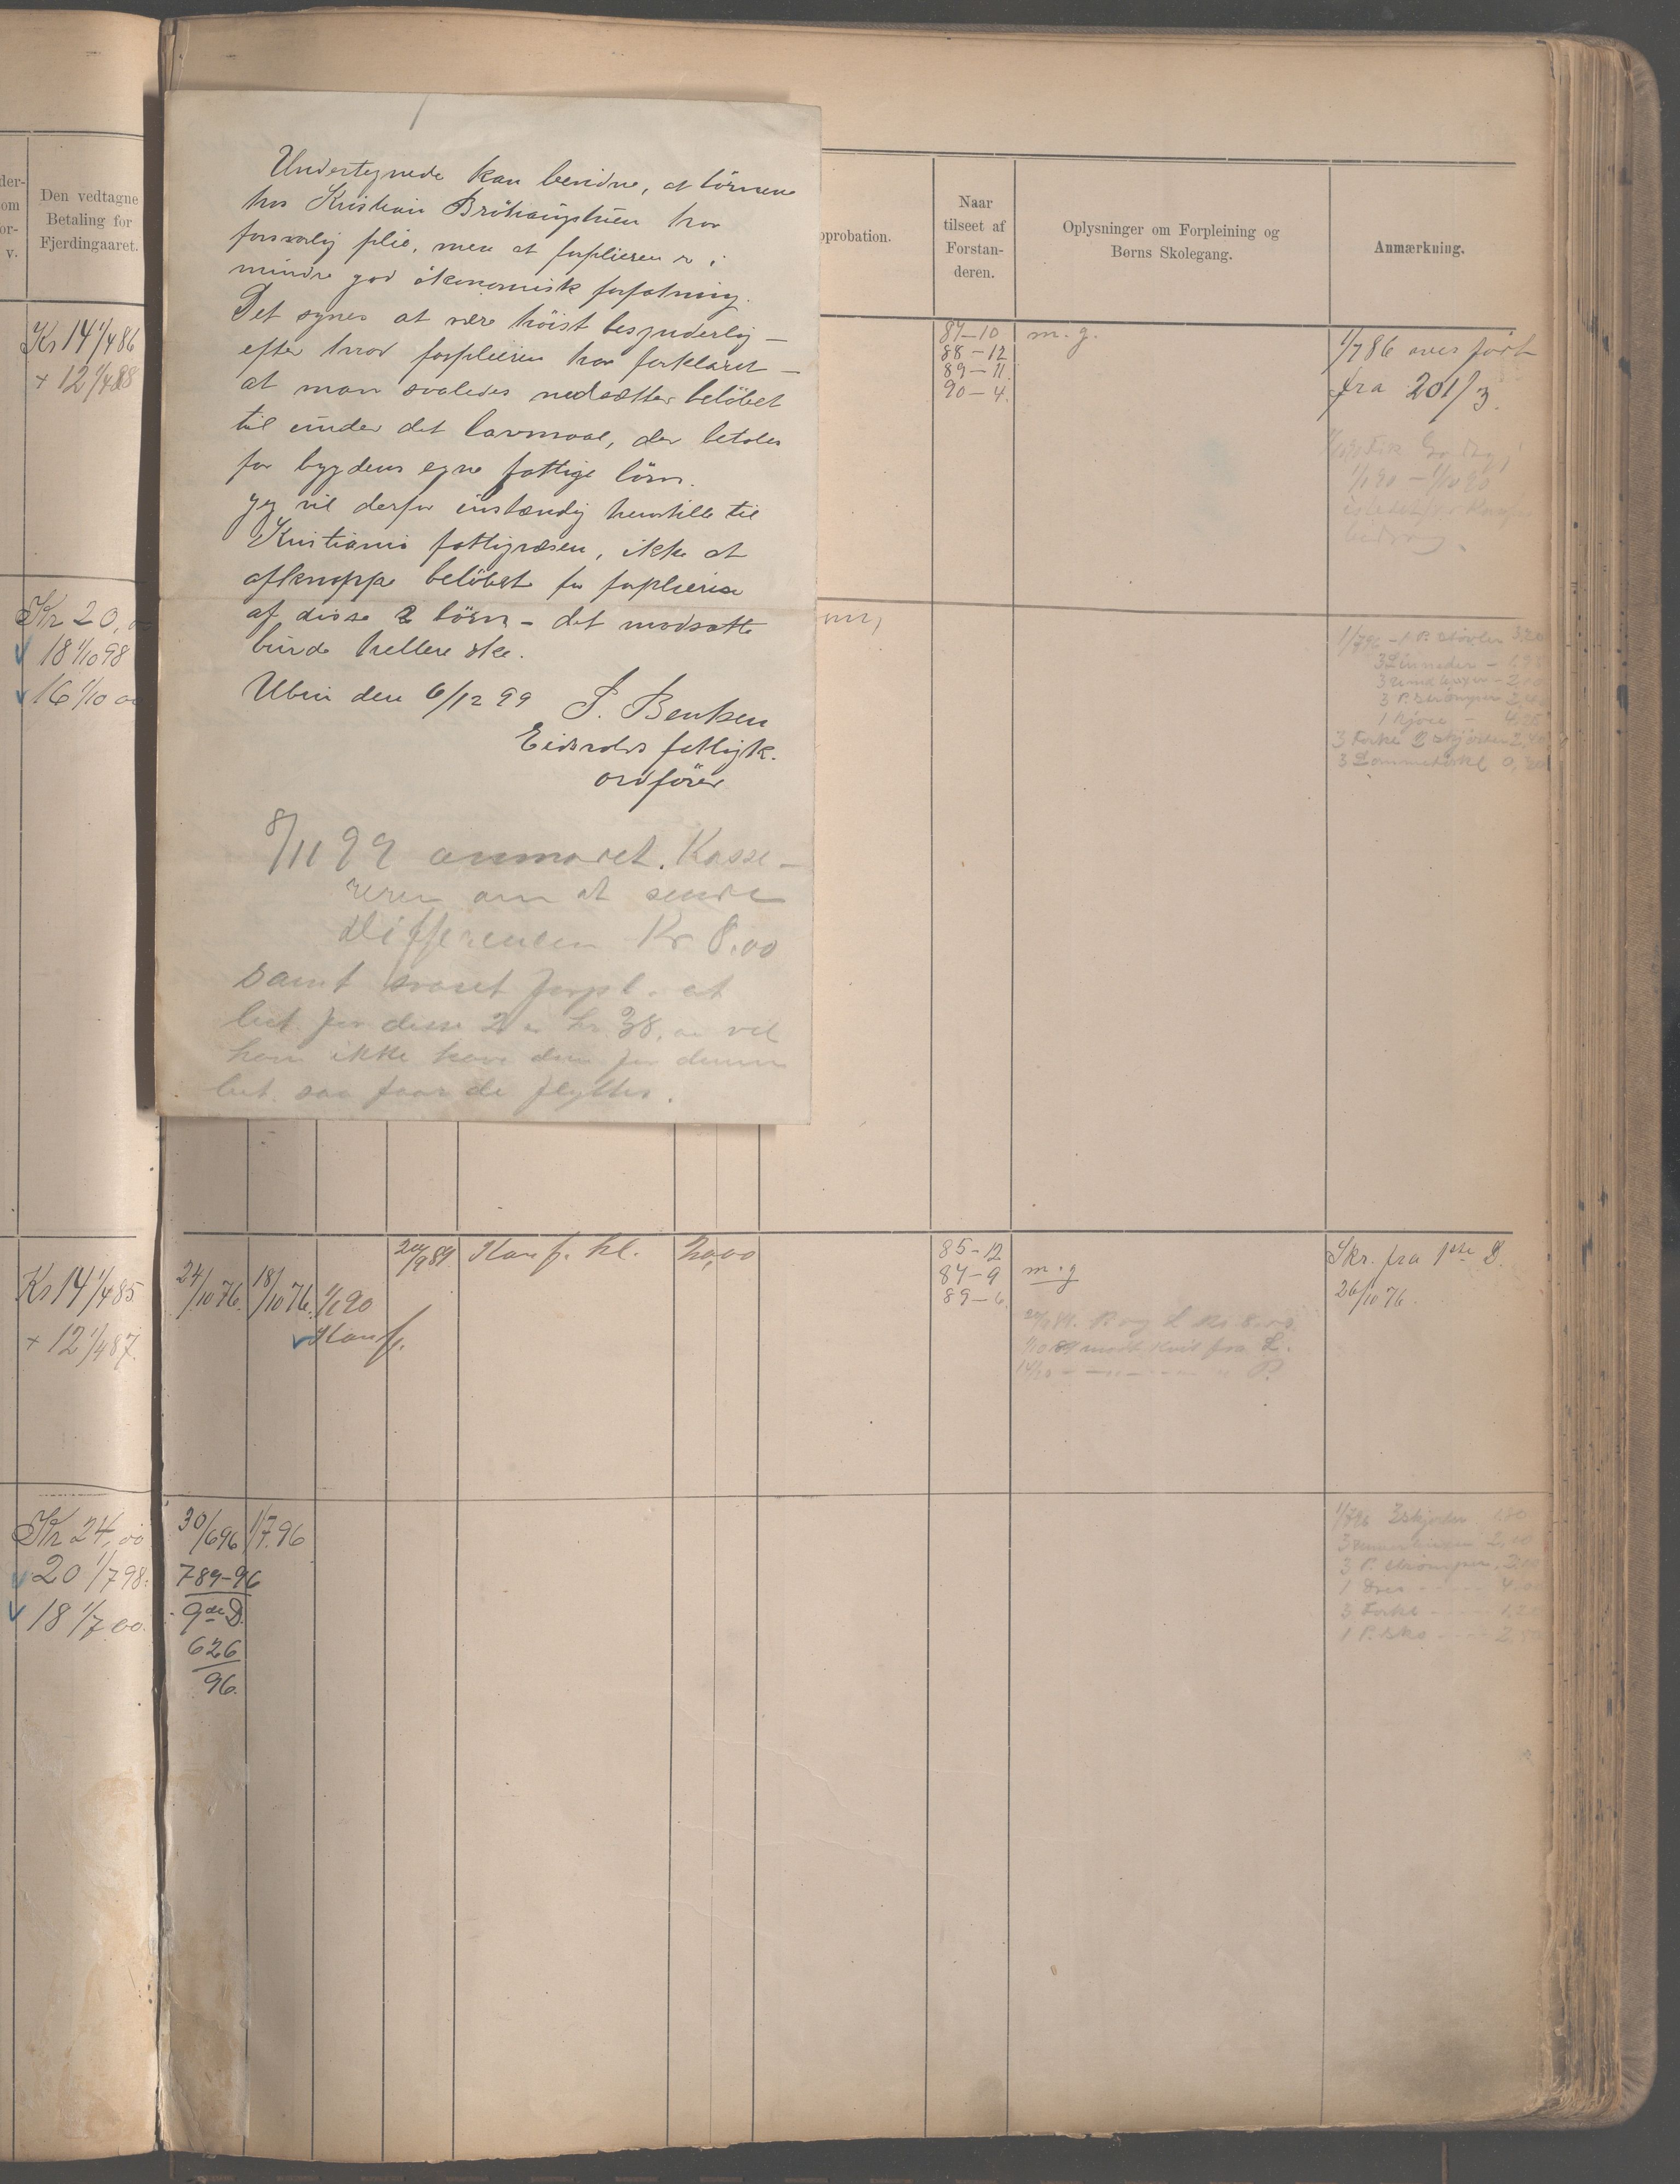 der-
om
or-
v.
Den vedtagne
Betaling for
Fjerdingaaret.
Kr 14 1/4 86
+ 12 1/4 88
Kr 20,
18 1/10 98
16 1/10 00
Kr 14 1/4 85
+ 12 1/4 87.
Kr 24,00
20 1/7 98.
18 1/7 00.
Undertegnede kan bevidne, at börnene
hos Kristian har
forsvarlig pleie, men at forpleieren er i
mindre god ökonomisk forfatning.
Det synes at være höist besynderlig –
efter hvad forpleieren har forklaret –
at man saaledes nedsætter belöbet
til under det lavmaal, der betales
for bygdens egne fattige börn.
Jeg vil derfor instændig henstille til
Kristiania fattigvæsen, ikke at
afknappe belöbet for forpleierne
af disse 2 börn – det modsatte
burde hellere ske.
den 6/12 99 Bentsen
Eidsvolds fattigk.
ordförer
8/11 99 anmodet. Kasse-
reren om at sende
Differencen Kr 8.00
samt svaret forpl. at
bet. for disse 2 er kr. 38, vil
han ikke have dem for denne
bet. saa faar de flyttes.
probation.
Naar
tilseet af
Forstan-
deren.
Oplysninger om Forpleining og
Børns Skolegang.
Anmærkning.
87–10
88–12
89–11
90–4.
m. g.
1/7 86 overført
fra 201/3.
1/7 96 – 1 P. støvler 3,20
3 Linneder –
3 P. strömper
1 kjole –
3 Forkl
3 Lommetörkl 0,
24/10 76.
18/10 76.
1/1 90
Konf.
20/9 89
Konf. kl.
20,00
85–12
87–9
89–6.
m. g
Skr. fra 1ste D.
26/10 76.
1/10 89 modt. kvit fra L.
30/6 96
1/7. 96
789–96
9de D.
626
96.
1/7 96
3 P. strömper
1 Dres
3 Forkl
1 P. sko